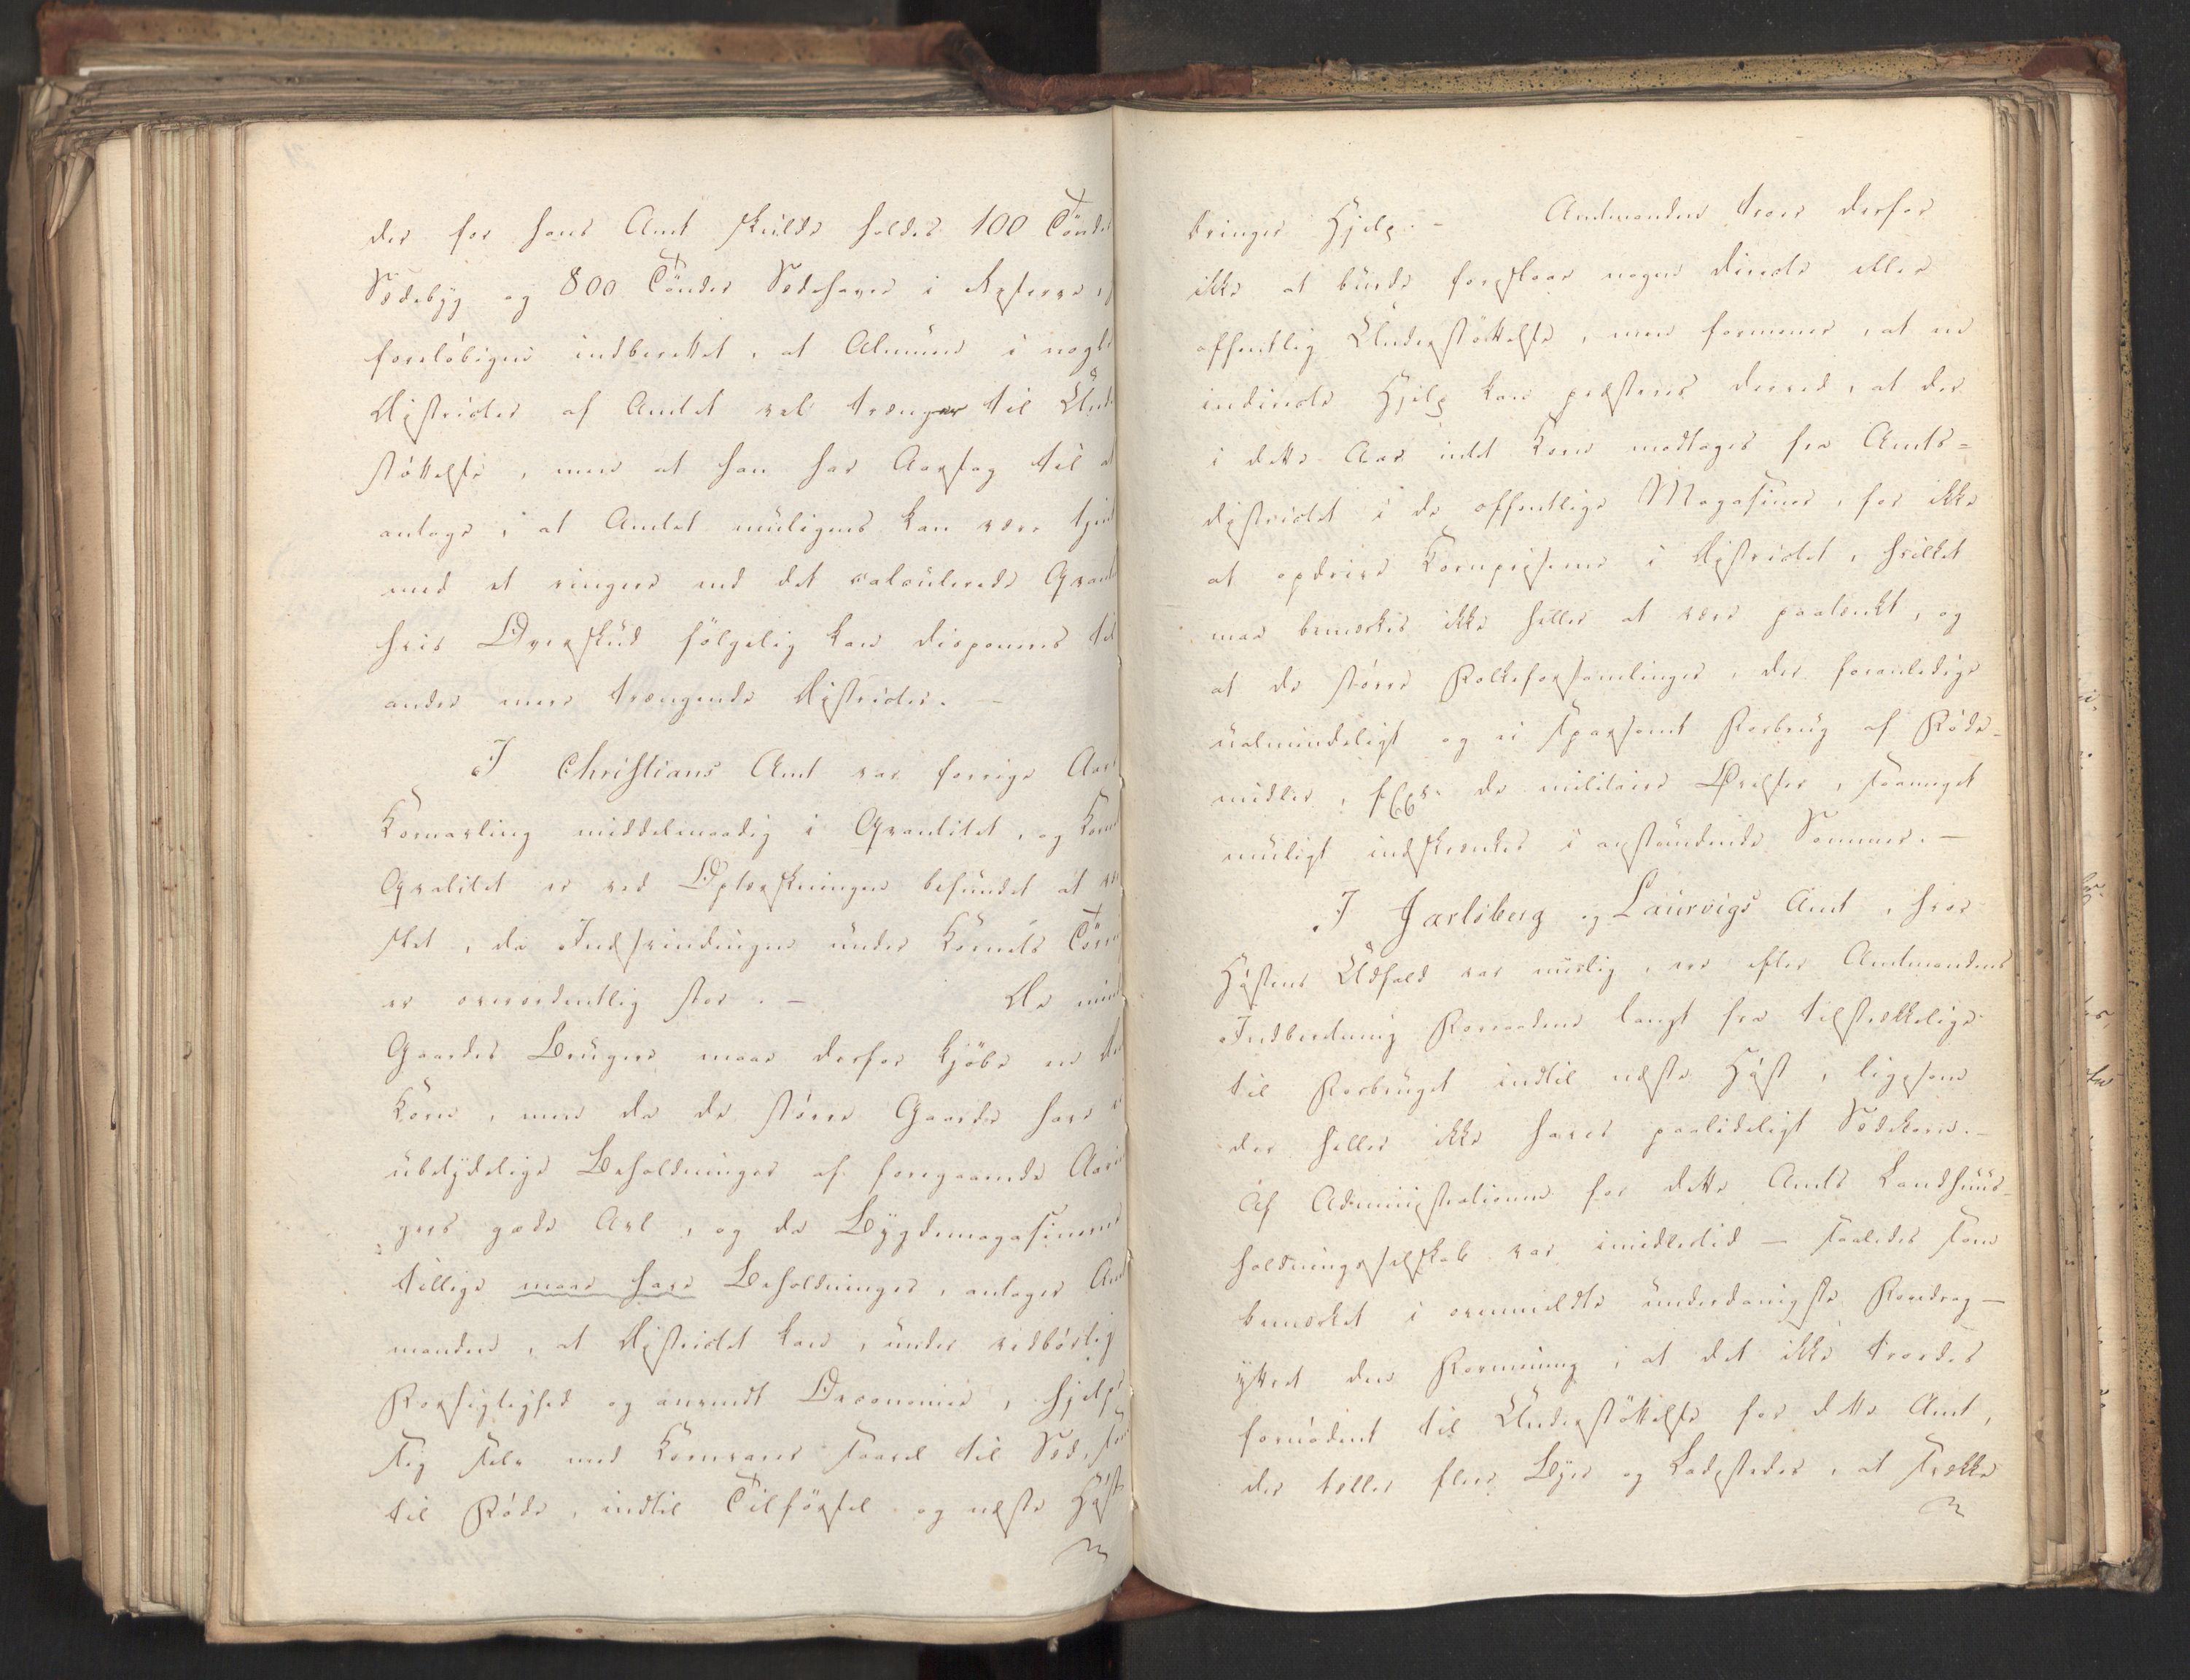 der for hans Amt skulde holdes 100 Tönder
Sædebyg og 800 Tönder Sædehavre i Reserve,
foreløbigen indberettet, at Almuen i nogle
Districter af Amtet vel trænger til Under
støttelse, men at han har Aarsag til at
antage, at Amtet muligens kan være tjent
med et ringere end det calculerede Qvantum
hvis Overskud følgelig kan disponeres til
andre mere trængende Districter. –
I Christians Amt var forrige Aars
Kornavling middelmaadig i Qvantitet, og Kornets
Qvalitet er ved Optærskningen befundet at være
slet, da Indsvindingen under Kornets Tørring
er overordentlig stor. – De mindre
Gaardes Brugere maae derfor kjøbe en Deel
Korn, men da de større Gaarde have ei
ubetydelige Beholdninger af foregaaende Aarin
gers gode Avl, og da Bygdemagasinerne
tillige maae have Beholdninger, antager Amt
manden, at Districtet kan, under tilbørlig
Forsigtighed og anvendt Oeconomie, hjelpe
sig selv med Kornvarer saavel til Sæd, som
til Føde, indtil Tilførsel og næste Høst
bringer Hjelp. – Amtmanden troer derfor
ikke at burde foreslaae nogen directe eller
offentlig Understøttelse, men formener, at en
indirecte Hjelp kan præsteres derved, at der
i dette Aar intet Korn modtages fra Amts-
districtet i de offentlige Magasiner, for ikke
at opdrive Kornpriserne i Districtet, hvilket
maa bemærkes ikke heller at være paatænkt, og
at de større Folkeforsamlinger, der foranledige
ualmindeligt og ei sparsomt Forbrug af Føde-
midler, f. Ex. de militaire Øvelser, saameget
muligt indskrænkes i anstundende Sommer. –
I Jarlsberg og Laurvigs Amt, hvor
Høstens Udfald var maadelig, ere efter Amtmandens
Indberetning Forraadene langt fra tilstrækkelige
til Forbruget indtil næste Høst, ligesom
der heller ikke haves paalideligt Sædekorn. –
Af Administrationen for dette Amts Landhuus-
holdningsselskab var imidlertid – saaledes som
bemærket i ovenmeldte underdanigste Foredrag –
yttret den Formening, at det ikke troedes
fornødent til Understøttelse for dette Amt,
der tæller flere Byer og Ladesteder, at trække